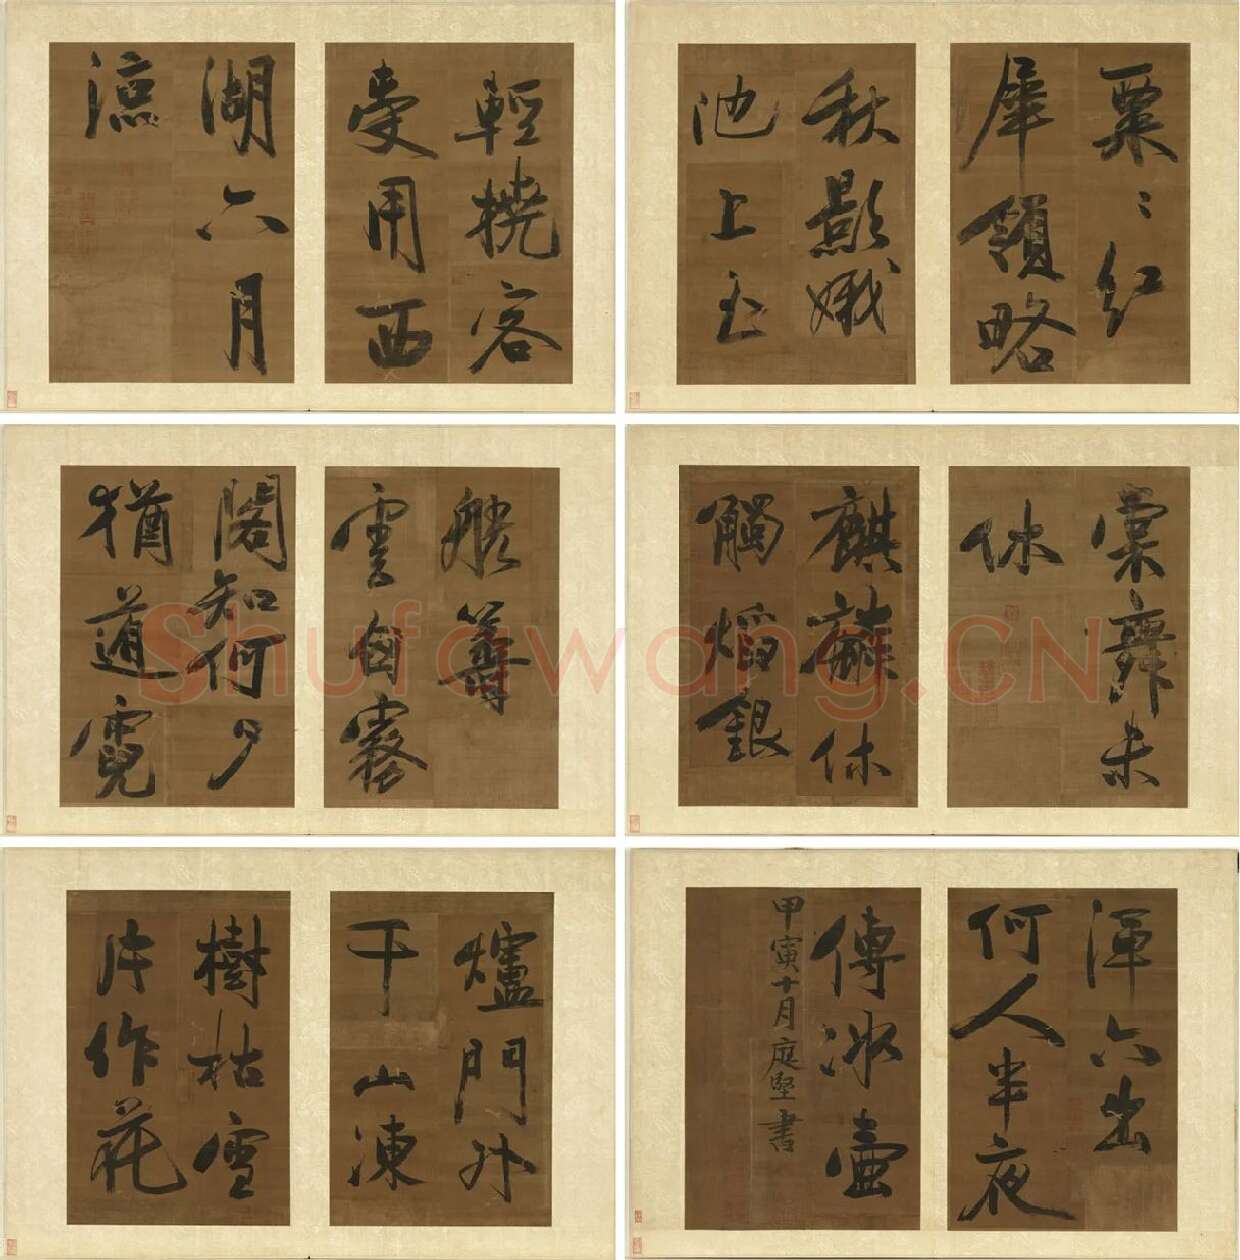 輕撓容
受用西
湖六月
涼
粟〻紅
犀領略
秋影娥
池上玉
般尊
雲囪霧
閣知何夕
猶道霓
裳舞未
休
麒麟休
觸焰銀
爐門外
千山凍
樹枯雪
片作花
渾六出
何人半夜
傳冰壺
甲寅十月庭堅書
Shufawang.CN